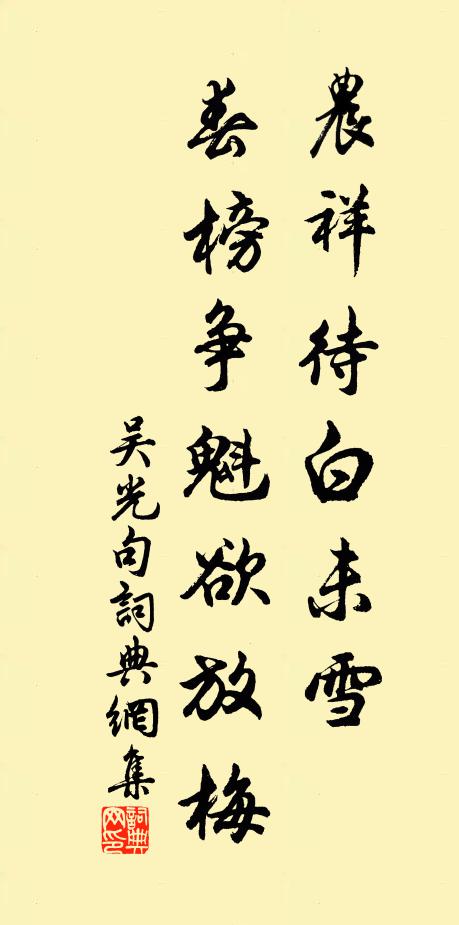 農祥待白未雪
春榜爭魁欲放梅
吴光句詞典網集
詞典網印